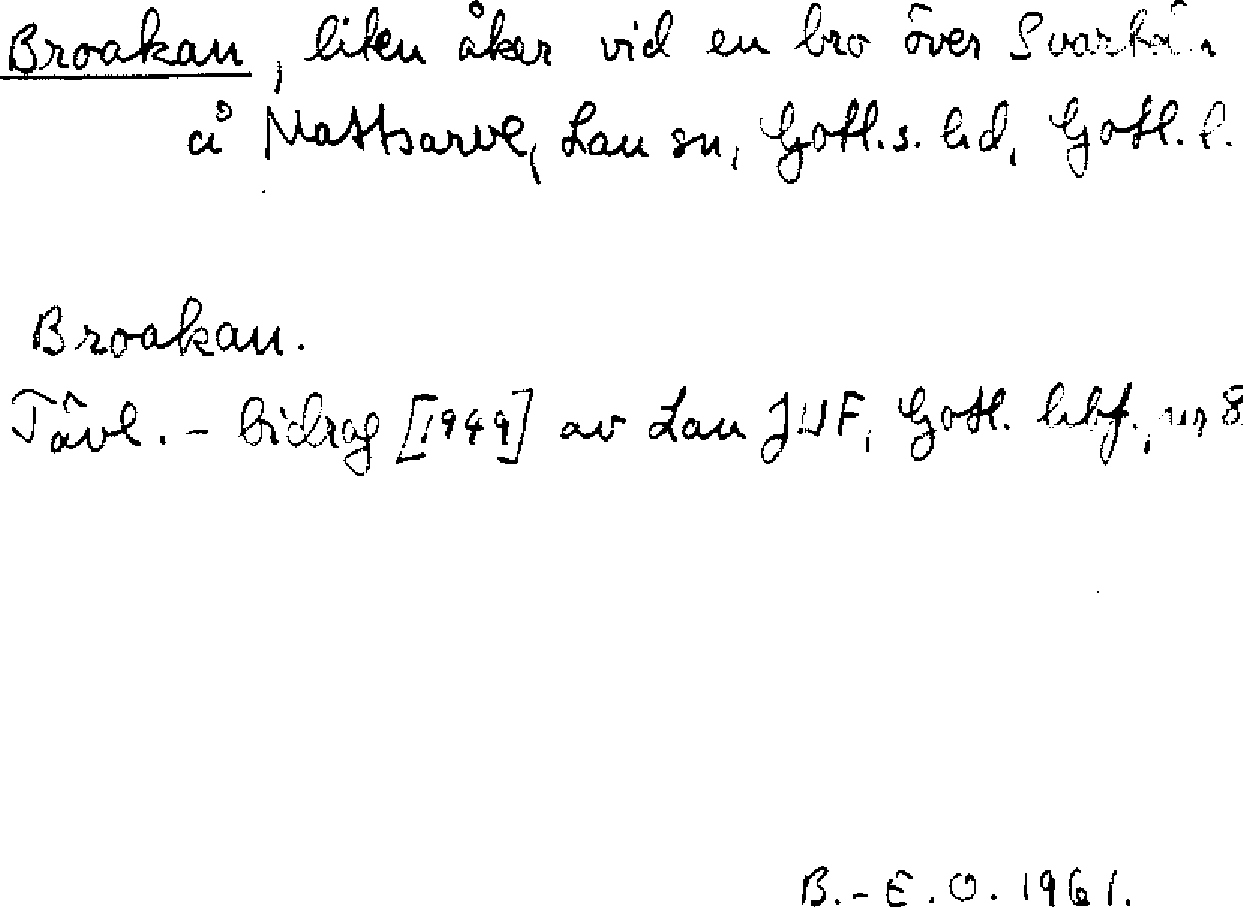 Broakan, liten åker vid en bro över
å Mattsarve, Lau sn, Gotl. s. hd, Gotl. l.
Broakan.
Tävl. - bidrag [1949] av Lau JUF, Gotl. hbf., nr 8
B.-E.O. 1961.